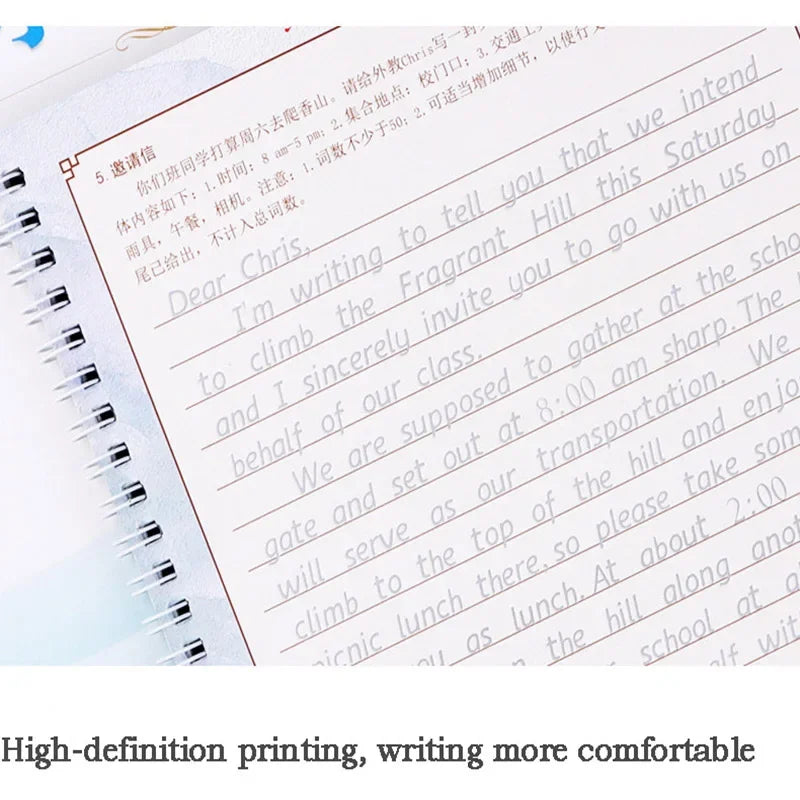 5.邀请信
你们班同学打算周六去爬香山。请给外教Chris写一封
体内容如下：1.时间：8 am-5 pm；2.集合地点：校门口；3.交通工
雨具，午餐，相机。注意：1.词数不少于50；2.可适当增加细节，以使行文
尾已给出，不计入总词数。
Dear Chris,
I'm writing to tell you that we intend
to climb the Fragrant Hill this Saturday
and I sincerely invite you to go with us on
behalf of our class.
We are supposed to gather at the
gate and set out at 8:00 am sharp. The
will serve as our transportation. We
climb to the top of the hill and
picnic lunch there. so please take
as lunch. At about 2:00
the hill along
school at
High-definition printing, writing more comfortable